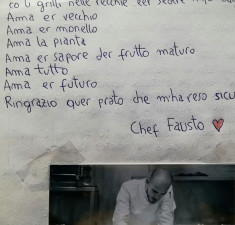 co li grilli nelle recchie per sentire
Ama er vecchio
Ama er monello
Ama la pianta
Ama er sapore der frutto maturo
Ama tutto
Ama er futuro
Ringrazio quer prato che mha reso sicu
Chef Fausto